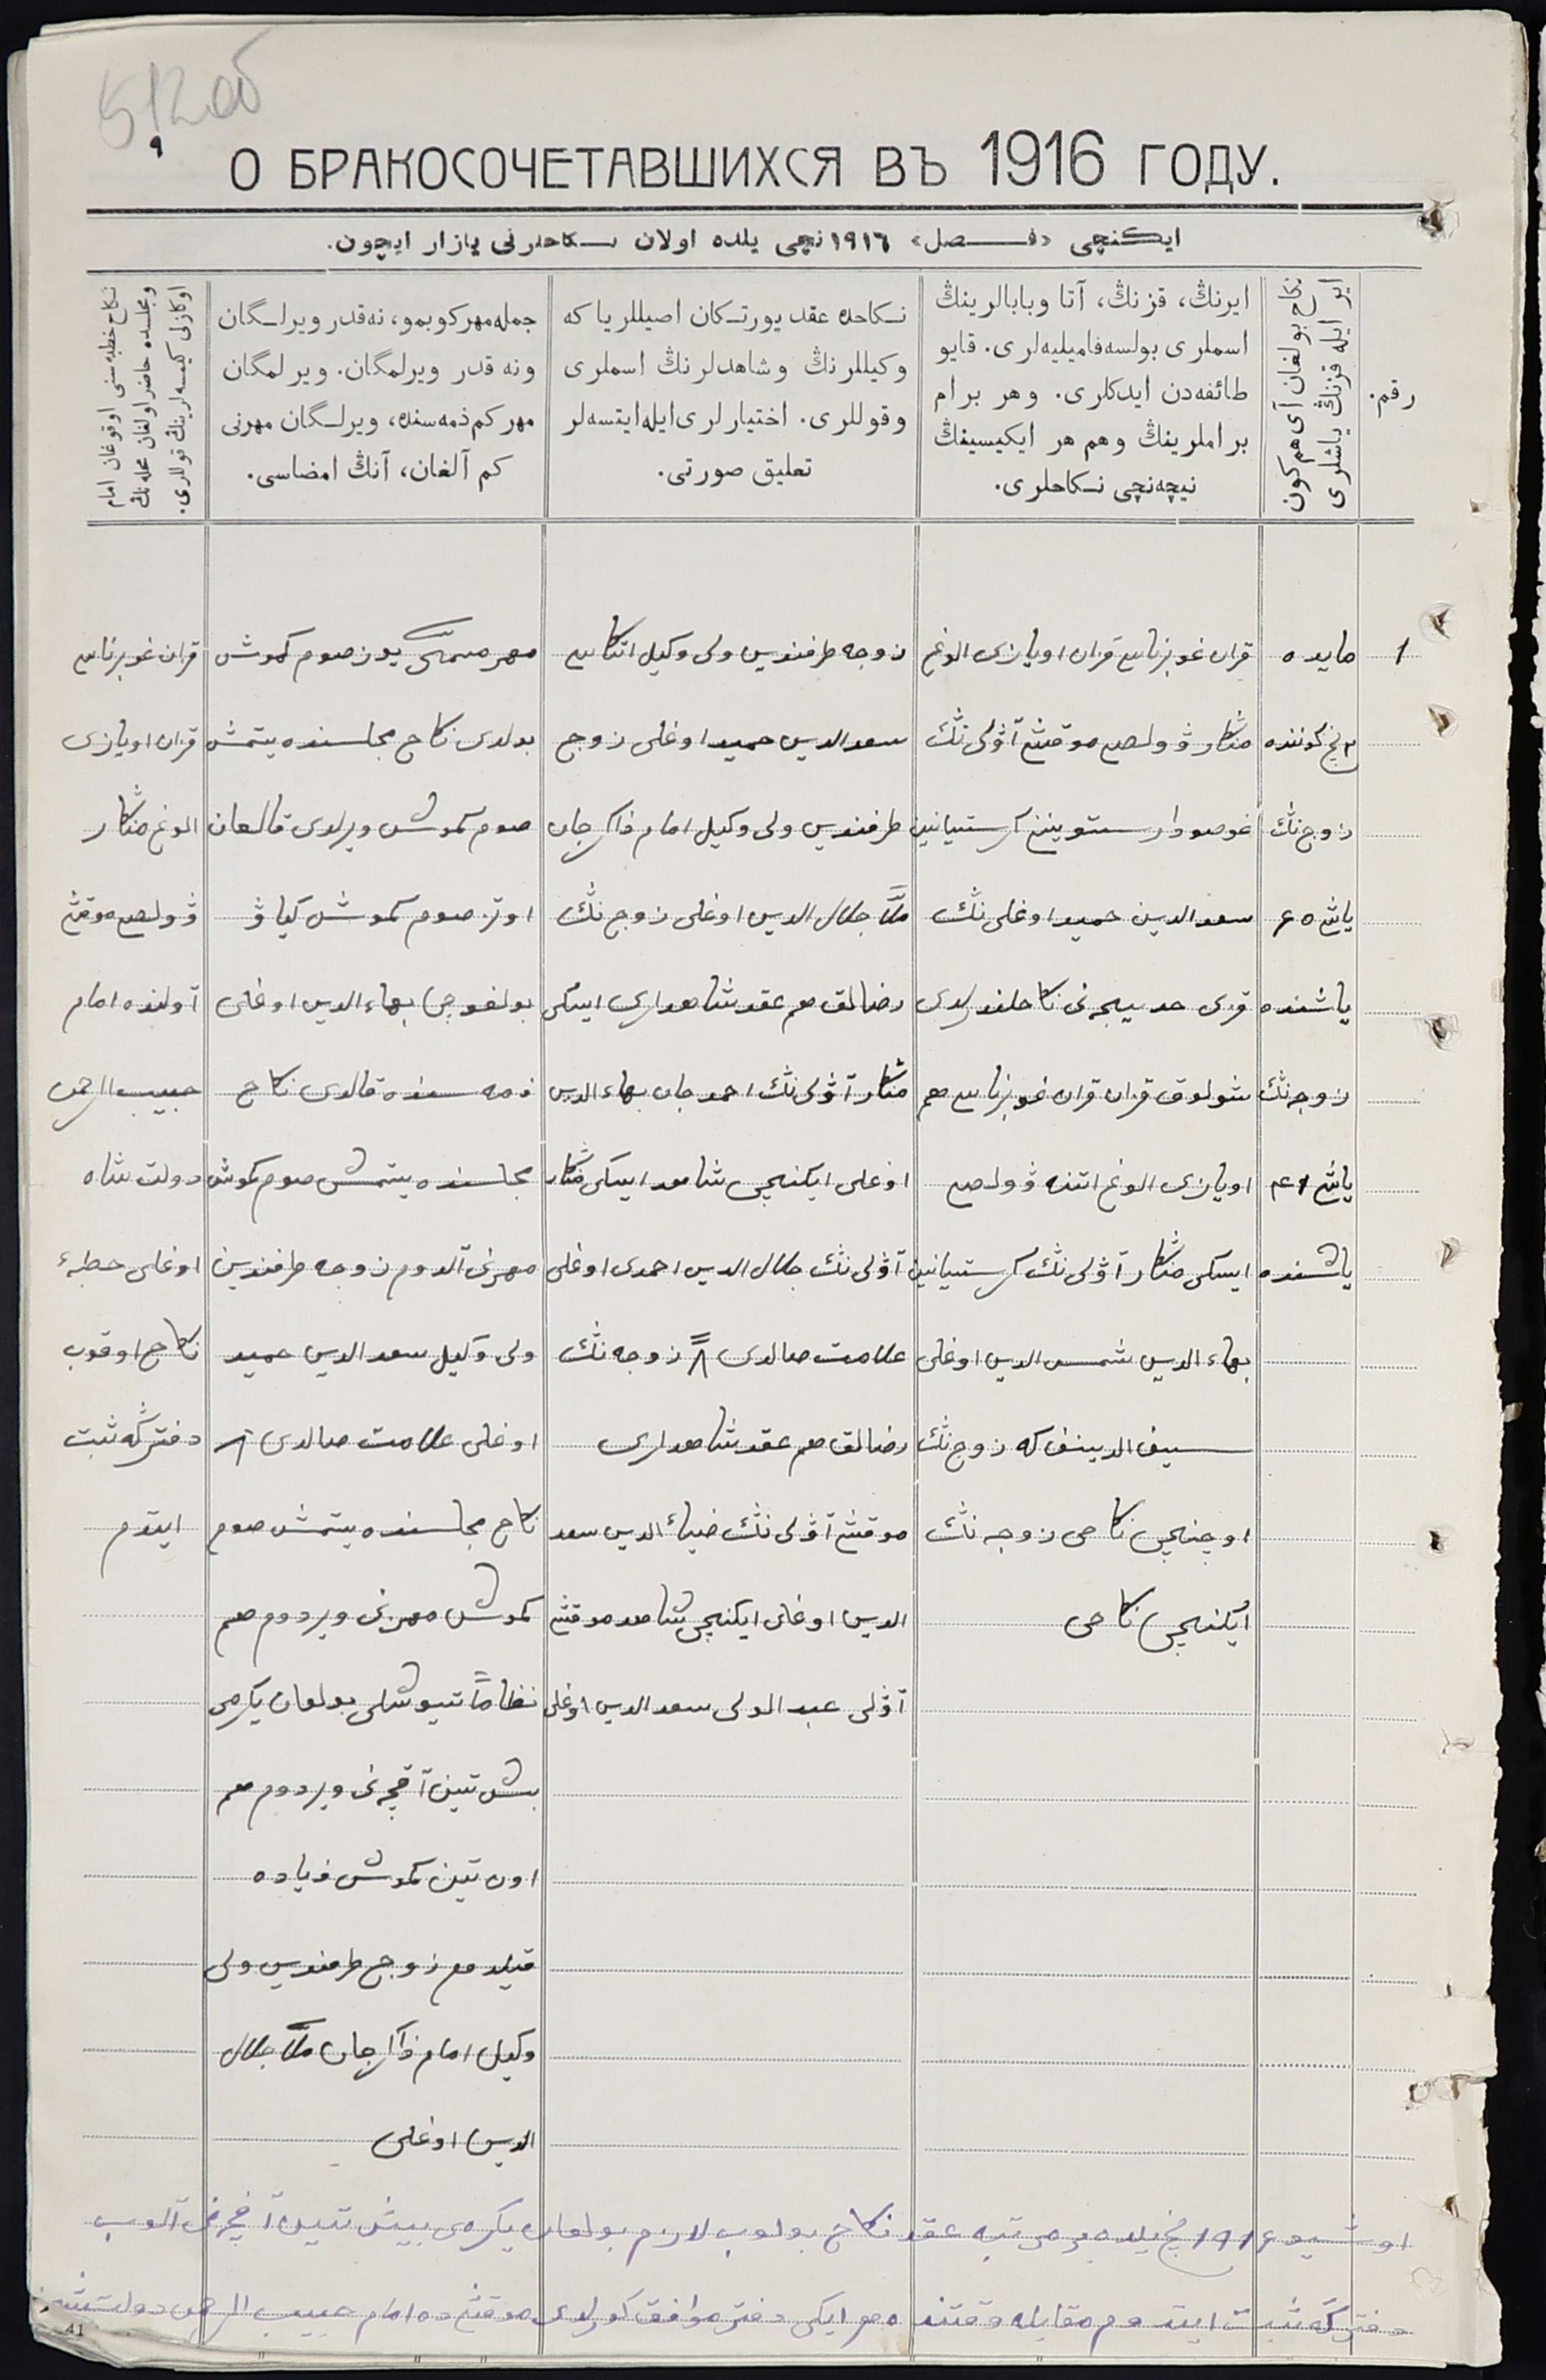 512об
٩
О БРАКОСОЧЕТАВШИХСЯ ВЪ 1916 ГОДУ.
ایکنچی «فصل» ١٩١٦ نچی یلده اولان نکاحلرنی یازار ایچون.
رقم.
نکاح بولغان آی هم کون
ایر ایله قزنڭ یاشلری
ایرنڭ، قزنڭ، آتا وبابالرینڭ
اسملری بولسه فامیلیه‌لری. قایو
طائفه‌دن ایدکلری. وهر برام
براملرینڭ وهم هر ایکیسینڭ
نیچه‌نچی نکاحلری.
نکاحده عقد یورتکان اصیللر یا که
وکیللرنڭ وشاهدلرنڭ اسملری
وقوللری. اختیارلری ایله ایتسه‌لر
تعلیق صورتی.
جمله مهر کوبمو، نه‌قدر ویرلگان
ونه قدر ویرلمگان. ویرلمگان
مهر کم ذمه‌سنده، ویرلگان مهرنی
کم آلغان، آنڭ امضاسی.
نکاح خطبه‌سنی اوقوغان امام
ومجلسده حاضر اولغان محله‌نڭ
اوکازلی کیمسه‌لرینڭ قوللری.
1
مایده
کوننده
زوج‌نڭ
یاش
یاشنده
زوجه‌نڭ
یاش
یاشنده
قزان غوبرناسی قزان اویازی الوغ
منکار ڤولصی موقشی آڤلی‌نڭ
کرستیانین
سعد الدین حمید اوغلی‌نڭ
قزی نکاحلندیلدی
شولوق قزان قزان غوبرناسی هم
اویازی الوغ اتنه ڤولصی
ایسکی منکار آڤلی‌نڭ کرستیانین
بهاء الدین شمس الدین اوغلی
سیف الدینف که زوج‌نڭ
اوچنچی نکاحی زوجه‌نڭ
ایکنچی نکاحی
زوجه طرفندین ولی وکیل اتکاسی
سعد الدین حمید اوغلی زوج
طرفندین ولی وکیل امام ذاکرجان
ملا جلال الدین اوغلی زوج‌نڭ
رضالق هم عقد شاهدلری ایسکی
منکار آڤلی‌نڭ احمد جان بهاء الدین
اوغلی ایکنچی شاهد ایسکی منکار
آڤلی‌نڭ جلال الدین احمدی اوغلی
علامت صالدی زوجه‌نڭ
رضالق هم عقد شاهدلری
موقشی آڤلی‌نڭ ضیاء الدین سعد
الدین اوغلی ایکنچی شاهد موقشی
آڤلی عبد الولی سعد الدین اوغلی
مهر مسمی یوز صوم کموش
بولدی نکاح مجلسنده یتمش
صوم کموش ویرلدی قالغان
اوتز صوم کموش کیاڤ
بولغوچی بهاء الدین اوغلی
ذمه سنده قالدی نکاح
مجلسنده یتمش صوم کموش
مهرنی آلدوم زوجه طرفندین
ولی وکیل سعد الدین حمید
اوغلی علامت صالدی
نکاح مجلسنده یتمش صوم
کموش مهرنی ویردوم هم
نظاماً تیوشلی بولغان یکرمی
بش تین آقچه‌نی ویردوم هم
اون تین کموش زیاده
قیلدم زوج طرفندین ولی
وکیل امام ذاکرجان ملا جلال
الدین اوغلی
قزان غوبرناسی
قزان اویازی
الوغ منکار
ڤولصی موقشی
آولنده امام
حبیب الرحمن
دولت شاه
اوغلی خطبهٔ
نکاح اوقوب
دفترگه ثبت
ایتدم
اوشبو ١٩١٦ نچی یلده بر مرتبه عقد نکاح بولوب لازم بولغان یکرمی بیش تیین آقچه‌نی آلوب
دفترگه ثبت ایتدوم مقابله وقتنده هر ایکی دفتر موافق کورلدی موقشی ده امام حبیب الرحمن دولتشه
41